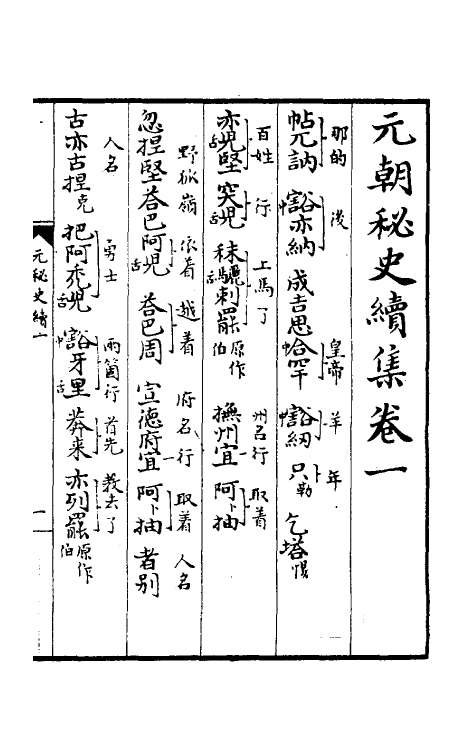 元朝秘史續集卷一
那的 後 皇帝 羊 年
帖兀訥 中豁亦納 成吉思中合罕 中豁紉 只勒 乞塔惕
百姓 行 上馬了 州名行 取着
亦舌兒堅 突舌兒 秣舌驪剌罷原作伯 撫州宜 阿卜抽
野狐嶺 依着 越着 府名行 取着 人名
忽捏堅荅巴阿舌兒 荅巴周 宣德府宜 阿卜抽 者別
人名 勇士 兩箇行 首先 教去了
古亦古捏克 把阿禿舌兒 中豁牙舌里 莽來 亦列罷原作伯
元秘史續一
一